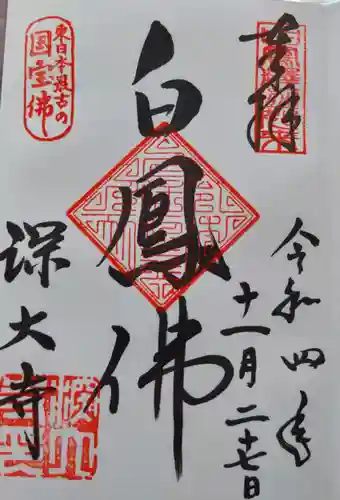 奉拝
令和四年
十一月二十七日
白鳳佛
東日本最古の
国宝佛
深大寺